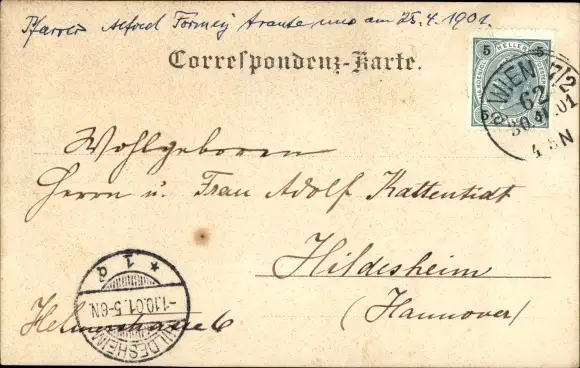 Pfarrer Alfred Formey traute uns am 25.4.1901.
Correspondenz-Karte.
5 HELLER 5
WIEN 7/2
62
30 01
4 N
Wohlgeboren
Herrn u. Frau Adolf Kattentidt
Hildesheim
(Hannover)
* 1 a
-1.10.01.5-6N
HILDESHEIM
6